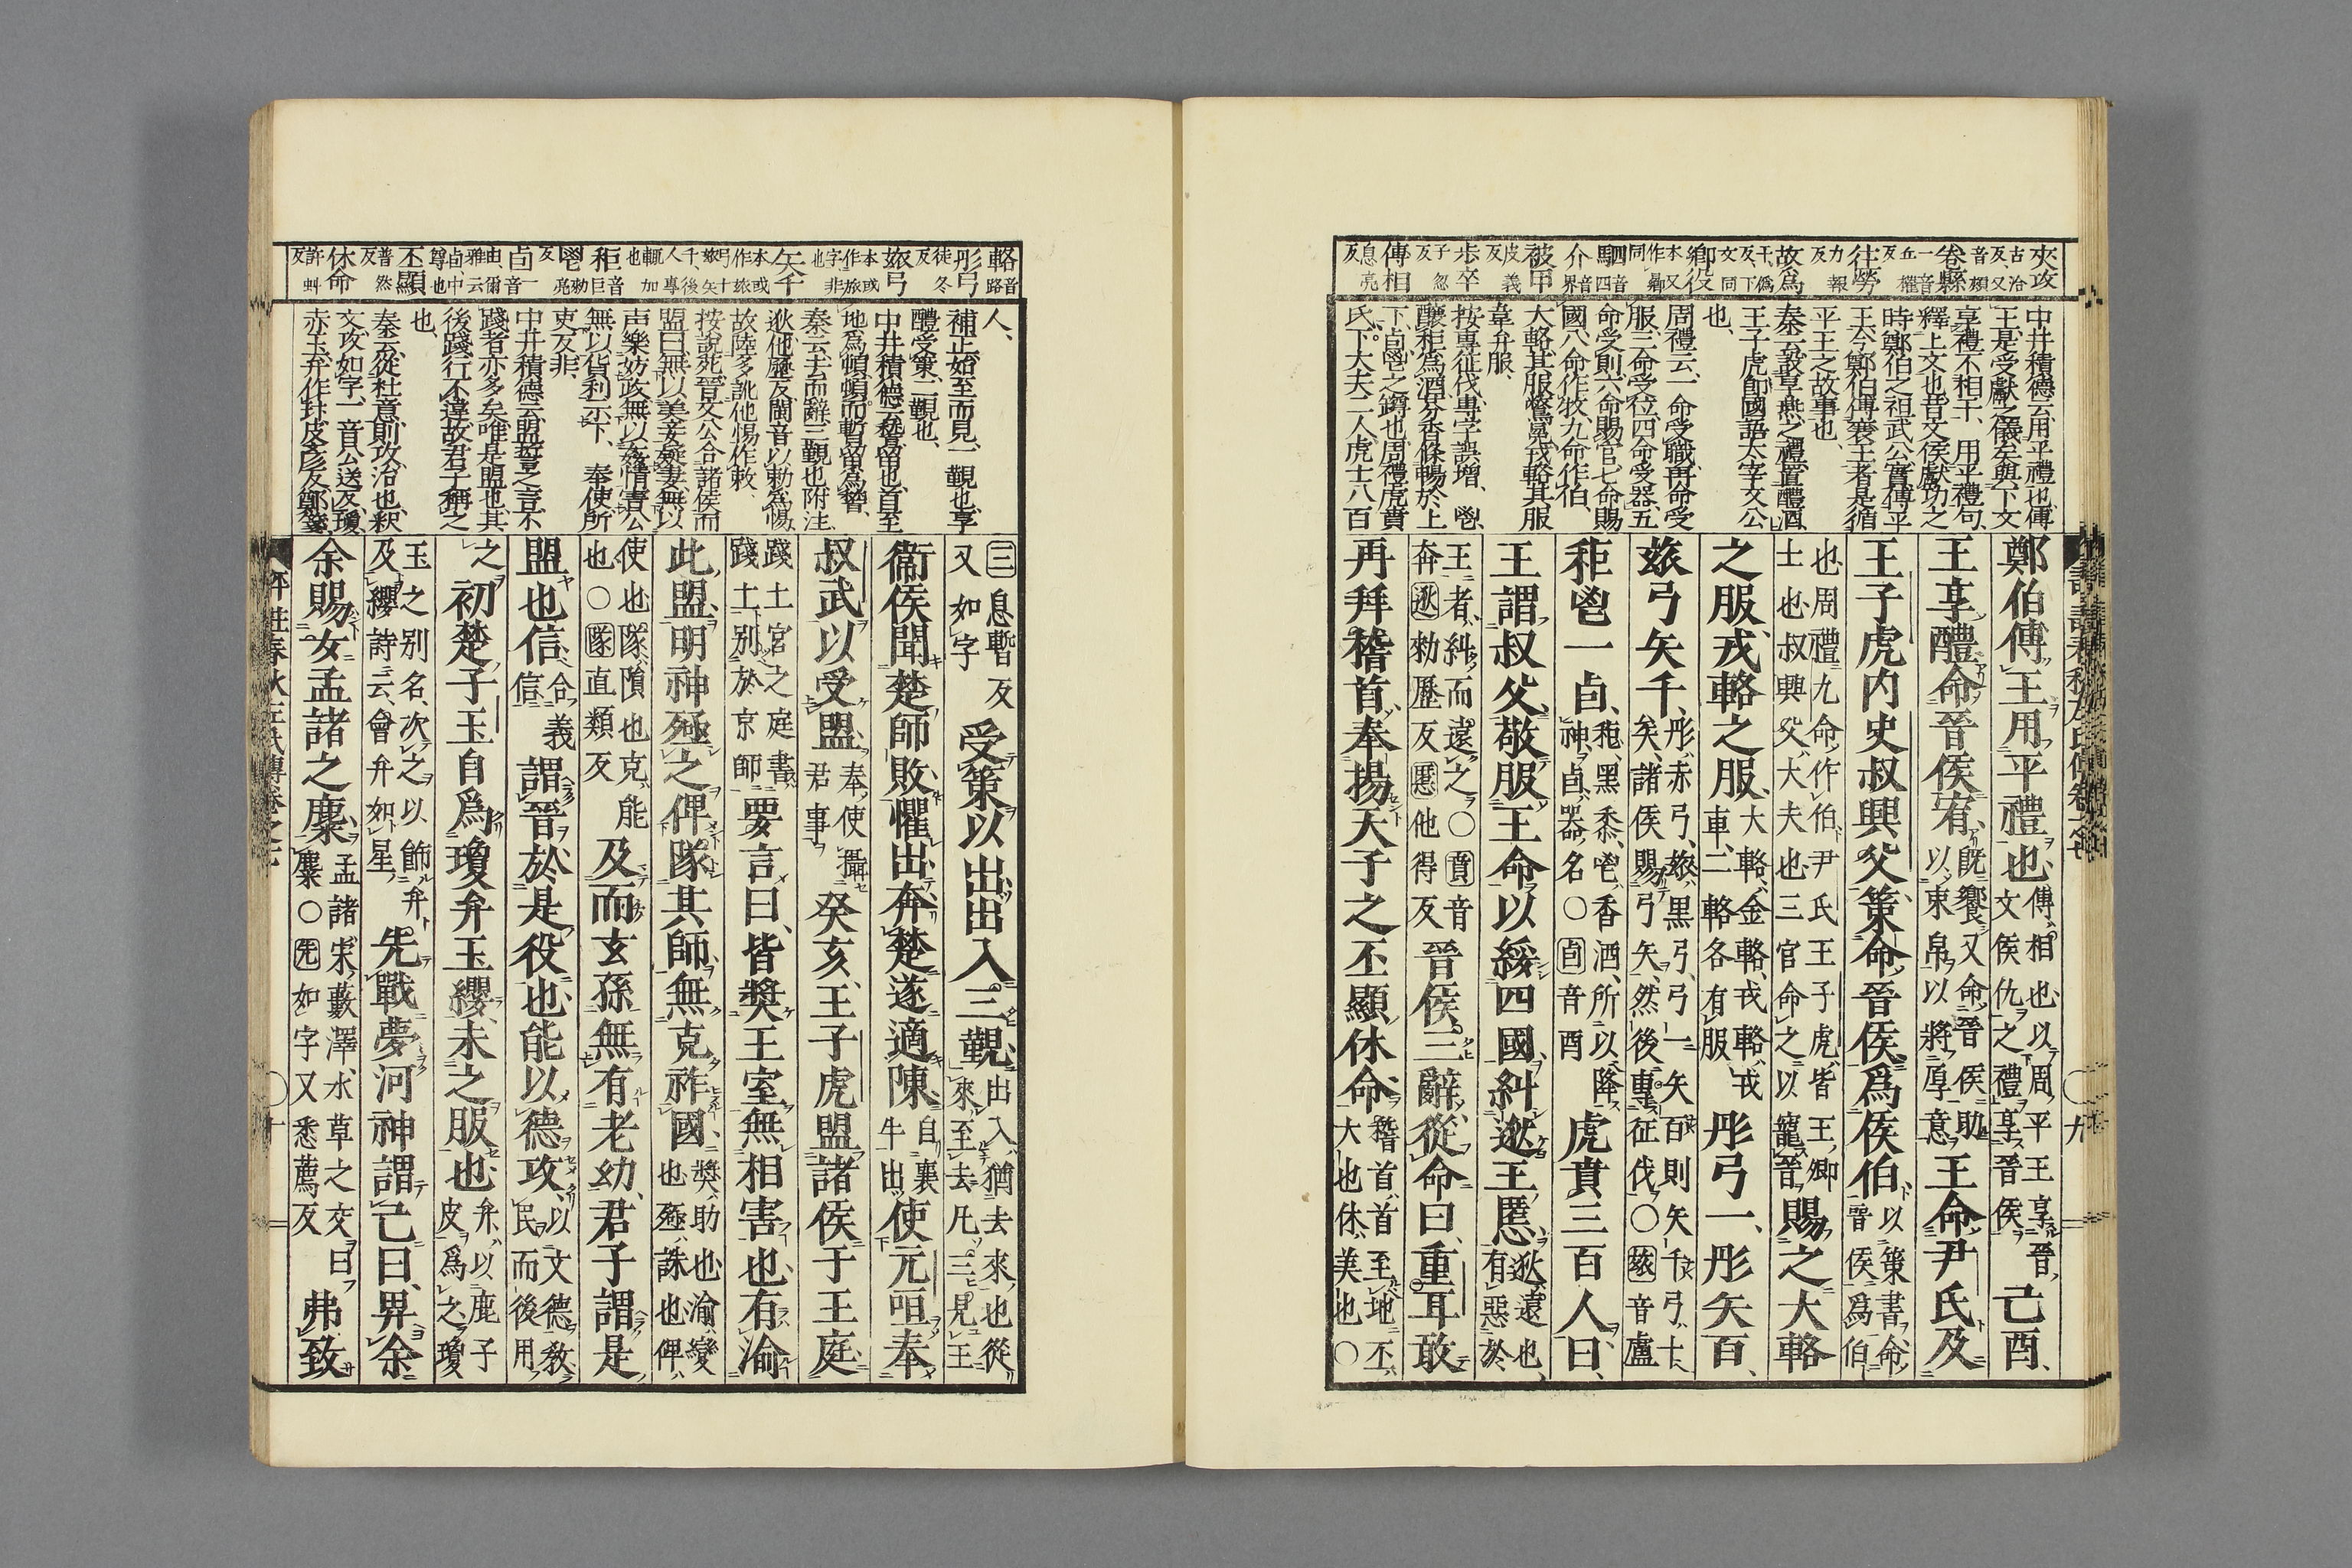 夾攻古洽反又音頰
卷縣音權一丘權反
往勞力報反
故爲于僞反下文同
鄉役本又作曏同
駟介音四音界
被甲皮義反
歩卒子忽反
傳相息亮反
中井積德云用平禮也傅
王是受獻之儀矣與下文
享禮不相干、用平禮句、
釋上文也昔文侯獻功之
時鄭伯之祖武公實傅平
王今鄭伯傅襄王者是循
平王之故事也、
秦云設享燕之禮置醴酒、
王子虎卽國語太宰文公
也、
周禮云一命受職再命受
服三命受位四命受器五
命受則六命賜官七命賜
國八命作牧九命作伯、
大輅其服鷩冕戎輅其服
韋弁服、
按專征伐專字誤增、鬯
釀秬爲酒芬香條暢於上
下卣鬯之罇也周禮虎賁
氏下大夫二人虎士八百
鄭伯傅王用平禮也傅相也以周平王享晉文侯仇之禮享晉侯己酉、
王享醴命晉侯宥旣饗又命晉侯助以束帛以將厚意王命尹氏及
王子虎内史叔興父策命晉侯爲侯伯以策書命晉侯爲伯
也周禮九命作伯尹氏王子虎皆王卿士也叔興父大夫也三官命之以寵晉賜之大輅
之服戎輅之服大輅金輅戎輅戎車二輅各有服彤弓一彤矢百、
玈弓矢千彤赤弓玈黒弓弓一矢百則矢千弓十矣諸侯賜弓矢然後專征伐○玈音盧
秬鬯一卣秬黒黍鬯香酒所以降神卣器名○卣音酉虎賁三百人曰、
王謂叔父敬服王命以綏四國糾逖王慝逖遠也有惡於
王者糾而遠之○賁音奔逖勑歷反慝他得反晉侯三辭從命曰重耳敢
再拜稽首奉揚天子之丕顯休命稽首首至地丕大也休美也○
輅音路
彤弓徒冬反
玈弓本或作旅字非也
矢千本或作玈弓十玈矢千後人專輒加也
秬音巨
鬯勑亮反
卣音由爾雅云卣中尊也
丕顯普然反
休命許虯反
人、
補正始至而見一覲也享
醴受策二覲也、
中井積德云稽留也首至
地爲頓頓而暫留爲稽、
秦云去而辭三覲也附注
逖他歷反閩音以勅爲惕
故陸多訛他惕作敕、
按說苑晉文公合諸侯而
盟曰無以美妾疑妻無以
声樂妨政無以姦情害公
無以貨利示下、奉使所
吏反非、
中井積德云盟誓之言不
踐者亦多矣唯是盟也其
後踐行不違故君子稱之
也、
秦云從杜意則攻治也釈
文攻如字一音公送反瓊
赤玉弁作玣皮彥反鄭箋
三息暫反又如字受策以出出入三覲出入猶去來也從來至去凡三見王
衞侯聞楚師敗懼出奔楚遂適陳自襄牛出使元咺奉
叔武以受盟奉使攝君事癸亥王子虎盟諸侯于王庭
踐土宮之庭書踐土別於京師要言曰皆奬王室無相害也有渝
此盟明神殛之俾隊其師無克祚國奬助也渝變也殛誅也俾
使也隊隕也克能也○隊直類反及而玄孫無有老幼君子謂是
盟也信合義信謂晉於是役也能以德攻以文德敎民而後用
之初楚子玉自爲瓊弁玉纓未之服也弁以鹿子皮爲之瓊
玉之别名次之以飾弁及纓詩云會弁如星先戰夢河神謂己曰畀余
余賜女孟諸之麋孟諸宋藪澤水草之交曰麋○先如字又悉薦反弗致